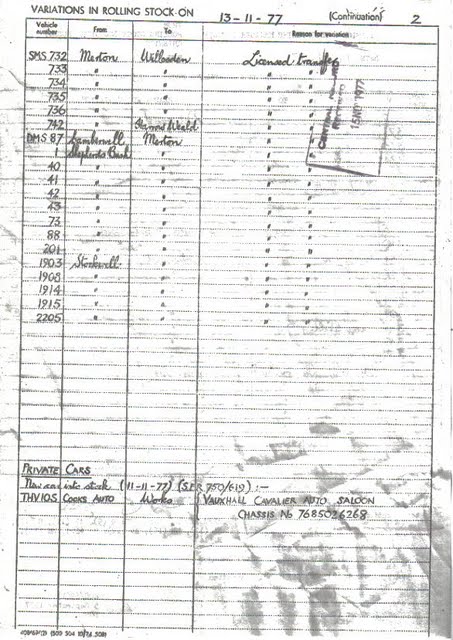 VARIATIONS IN ROLLING STOCK ON 13-11-77 (Continuation) 2
Vehicle number From To Reason for variation
SMS 732 Merton Willesden Licensed transfer
733 " " " "
734 " " " "
735 " " " "
736 " " " "
742 " Harrow Weald " "
DMS 87 Camberwell Merton " "
Shepherds Bush " " "
40 " " " "
41 " " " "
42 " " " "
43 " " " "
73 " " " "
88 " " " "
201 " " " "
1903 Stockwell " " "
1908 " " " "
1914 " " " "
1915 " " " "
2205 " " " "
PRIVATE CARS
New car into stock (11-11-77) (S.E.R 750/619) :-
THV 10S COOKS AUTO Works VAUXHALL CAVALIER AUTO SALOON
CHASSIS No 7685026268